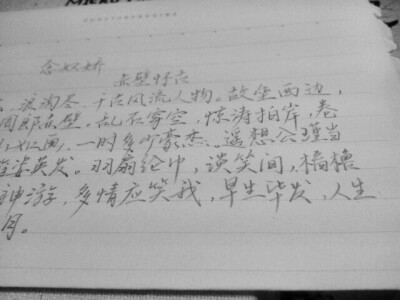 念奴娇
赤壁怀古
浪淘尽、千古风流人物。故垒西边，
周郎赤壁。乱石穿空，惊涛拍岸，卷
一时多少豪杰。遥想公瑾当
英发。羽扇纶巾，谈笑间，樯橹
神游，多情应笑我，早生华发，人生
月。